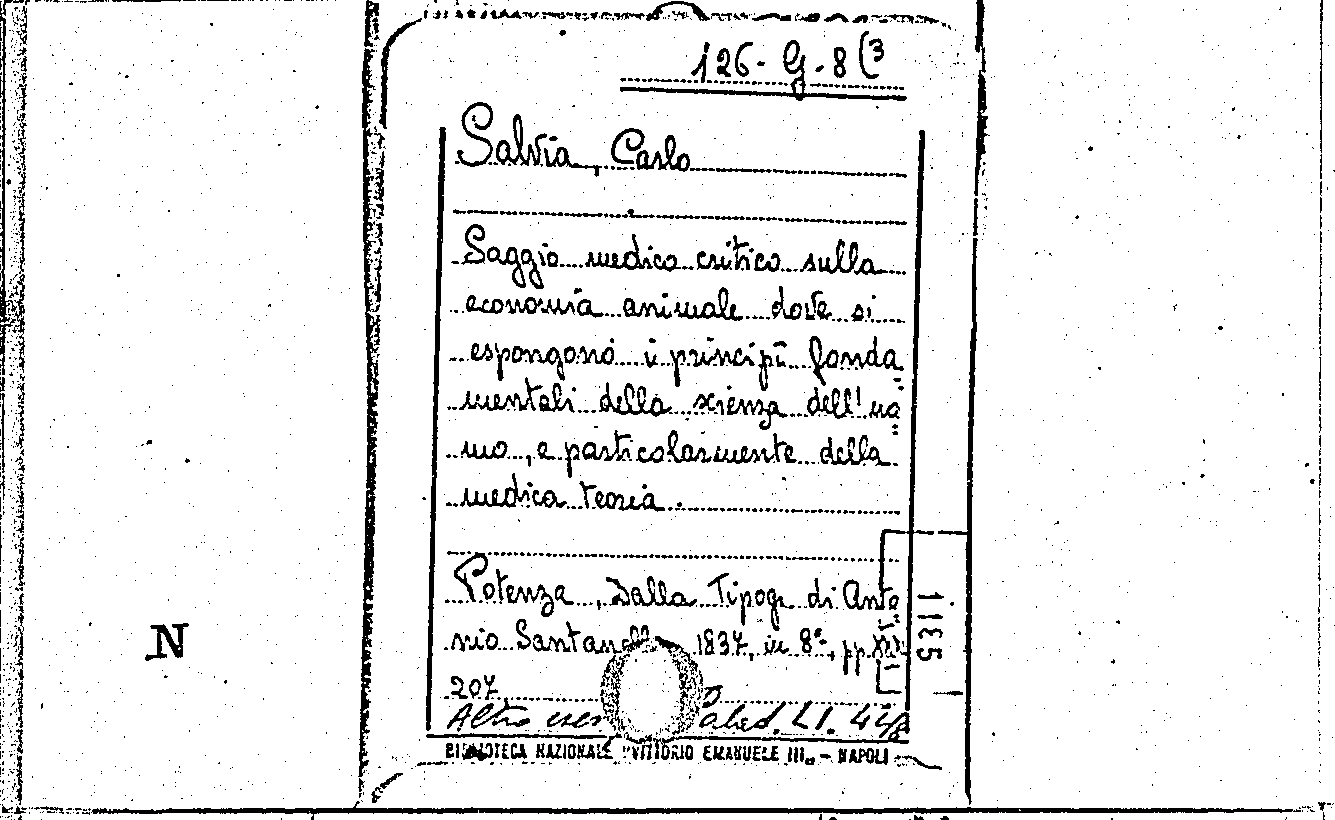 126-G-8(3
Salvia, Carlo
Saggio medico critico sulla
economia animale dove si
espongono i principii fonda
mentali della scienza dell'uo
mo, e particolarmente della
medica teoria.
Potenza, Dalla Tipogr. di Anto
nio Santan 1837, in 8º, pp.
207
Altro L1.
BIBLIOTECA NAZIONALE "VITTORIO EMANUELE III" - NAPOLI
1135
N